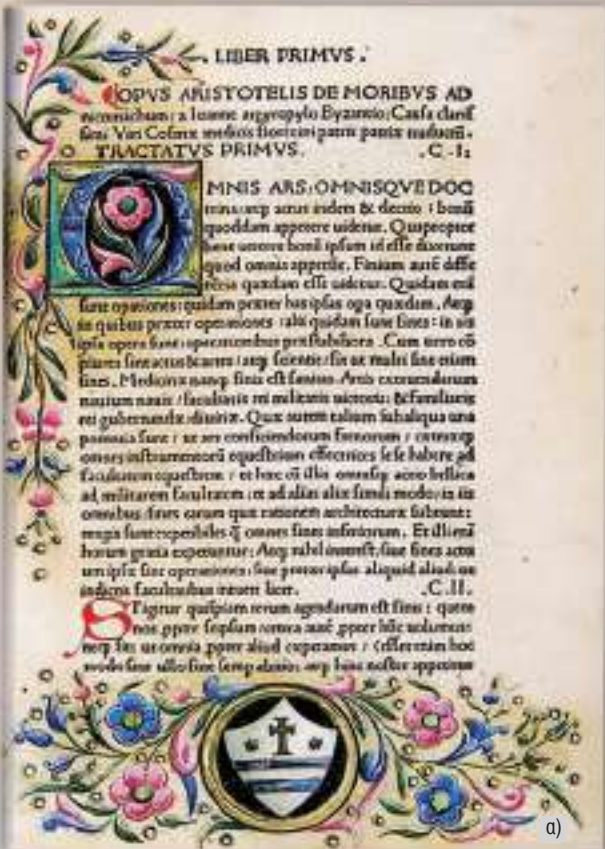 LIBER PRIMVS.
OPVS ARISTOTELIS DE MORIBVS AD
nicomachum: a Ioanne argyropylo Byzantio: Causa
Viri Cosmæ medicis florentini patris patriæ
TRACTATVS PRIMVS. .C. I.
OMNIS ARS: OMNISQVE DOC
trina: atqꝫ actus itidem & electio: bonū
quoddam appetere uidetur. Quapropter
bene ipsum id esse dixerunt
quod omnia appetūt. Finium autē diffe
rentia quædam esse uidetur. Quidam enī
sunt operationes: quidam præter has ipsas opa quædam. Atqꝫ
in quibus præter operationes: alii quidam sunt fines: in iis
ipsa opera sunt: operationibus præstabiliora. Cum uero
plures sint actus & artes: atqꝫ scientiæ: fit ut multi sint etiam
fines. Medicinæ nanqꝫ finis est sanitas. Artis extruendarum
nauium nauis: facultatis rei militaris uictoria: & familiaris
rei gubernandæ: diuitiæ. Quæ autem talium sub aliqua una
sunt: ut ars conficiendorum frenorum:
omnes instrumentorū equestrium effectrices sese habent ad
facultatem equestrem: et hæc omnisqꝫ actio bellica
ad militarem facultatem: et ad alias aliæ simili modo: in iis
omnibus fines earum quæ rationem architecturæ subeunt:
magis sunt expetibiles omnes fines inferiorum. Et
horum gratia expetuntur: Atqꝫ nihil interest: siue fines actu
um ipsæ sint operationes: siue præter ipsas aliquid aliud: ut
facultatibus licet. .C. II.
SI igitur quispiam rerum agendarum est finis: quem
nos ppter seipsum autē ppter hūc uolumus:
ut omnia ppter aliud expetamus:
modo sine ullo fine atqꝫ noster appetitus
a)